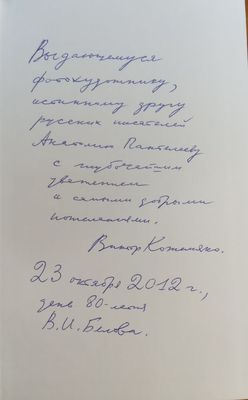 Выдающемуся
фотохудожнику,
истинному другу
русских писателей
Анатолию Пантелееву
с глубочайшим
уважением
и самыми добрыми
пожеланиями.
Виктор Кожемяко.
23 октября 2012 г.,
день 80-летия
В.И. Белова.